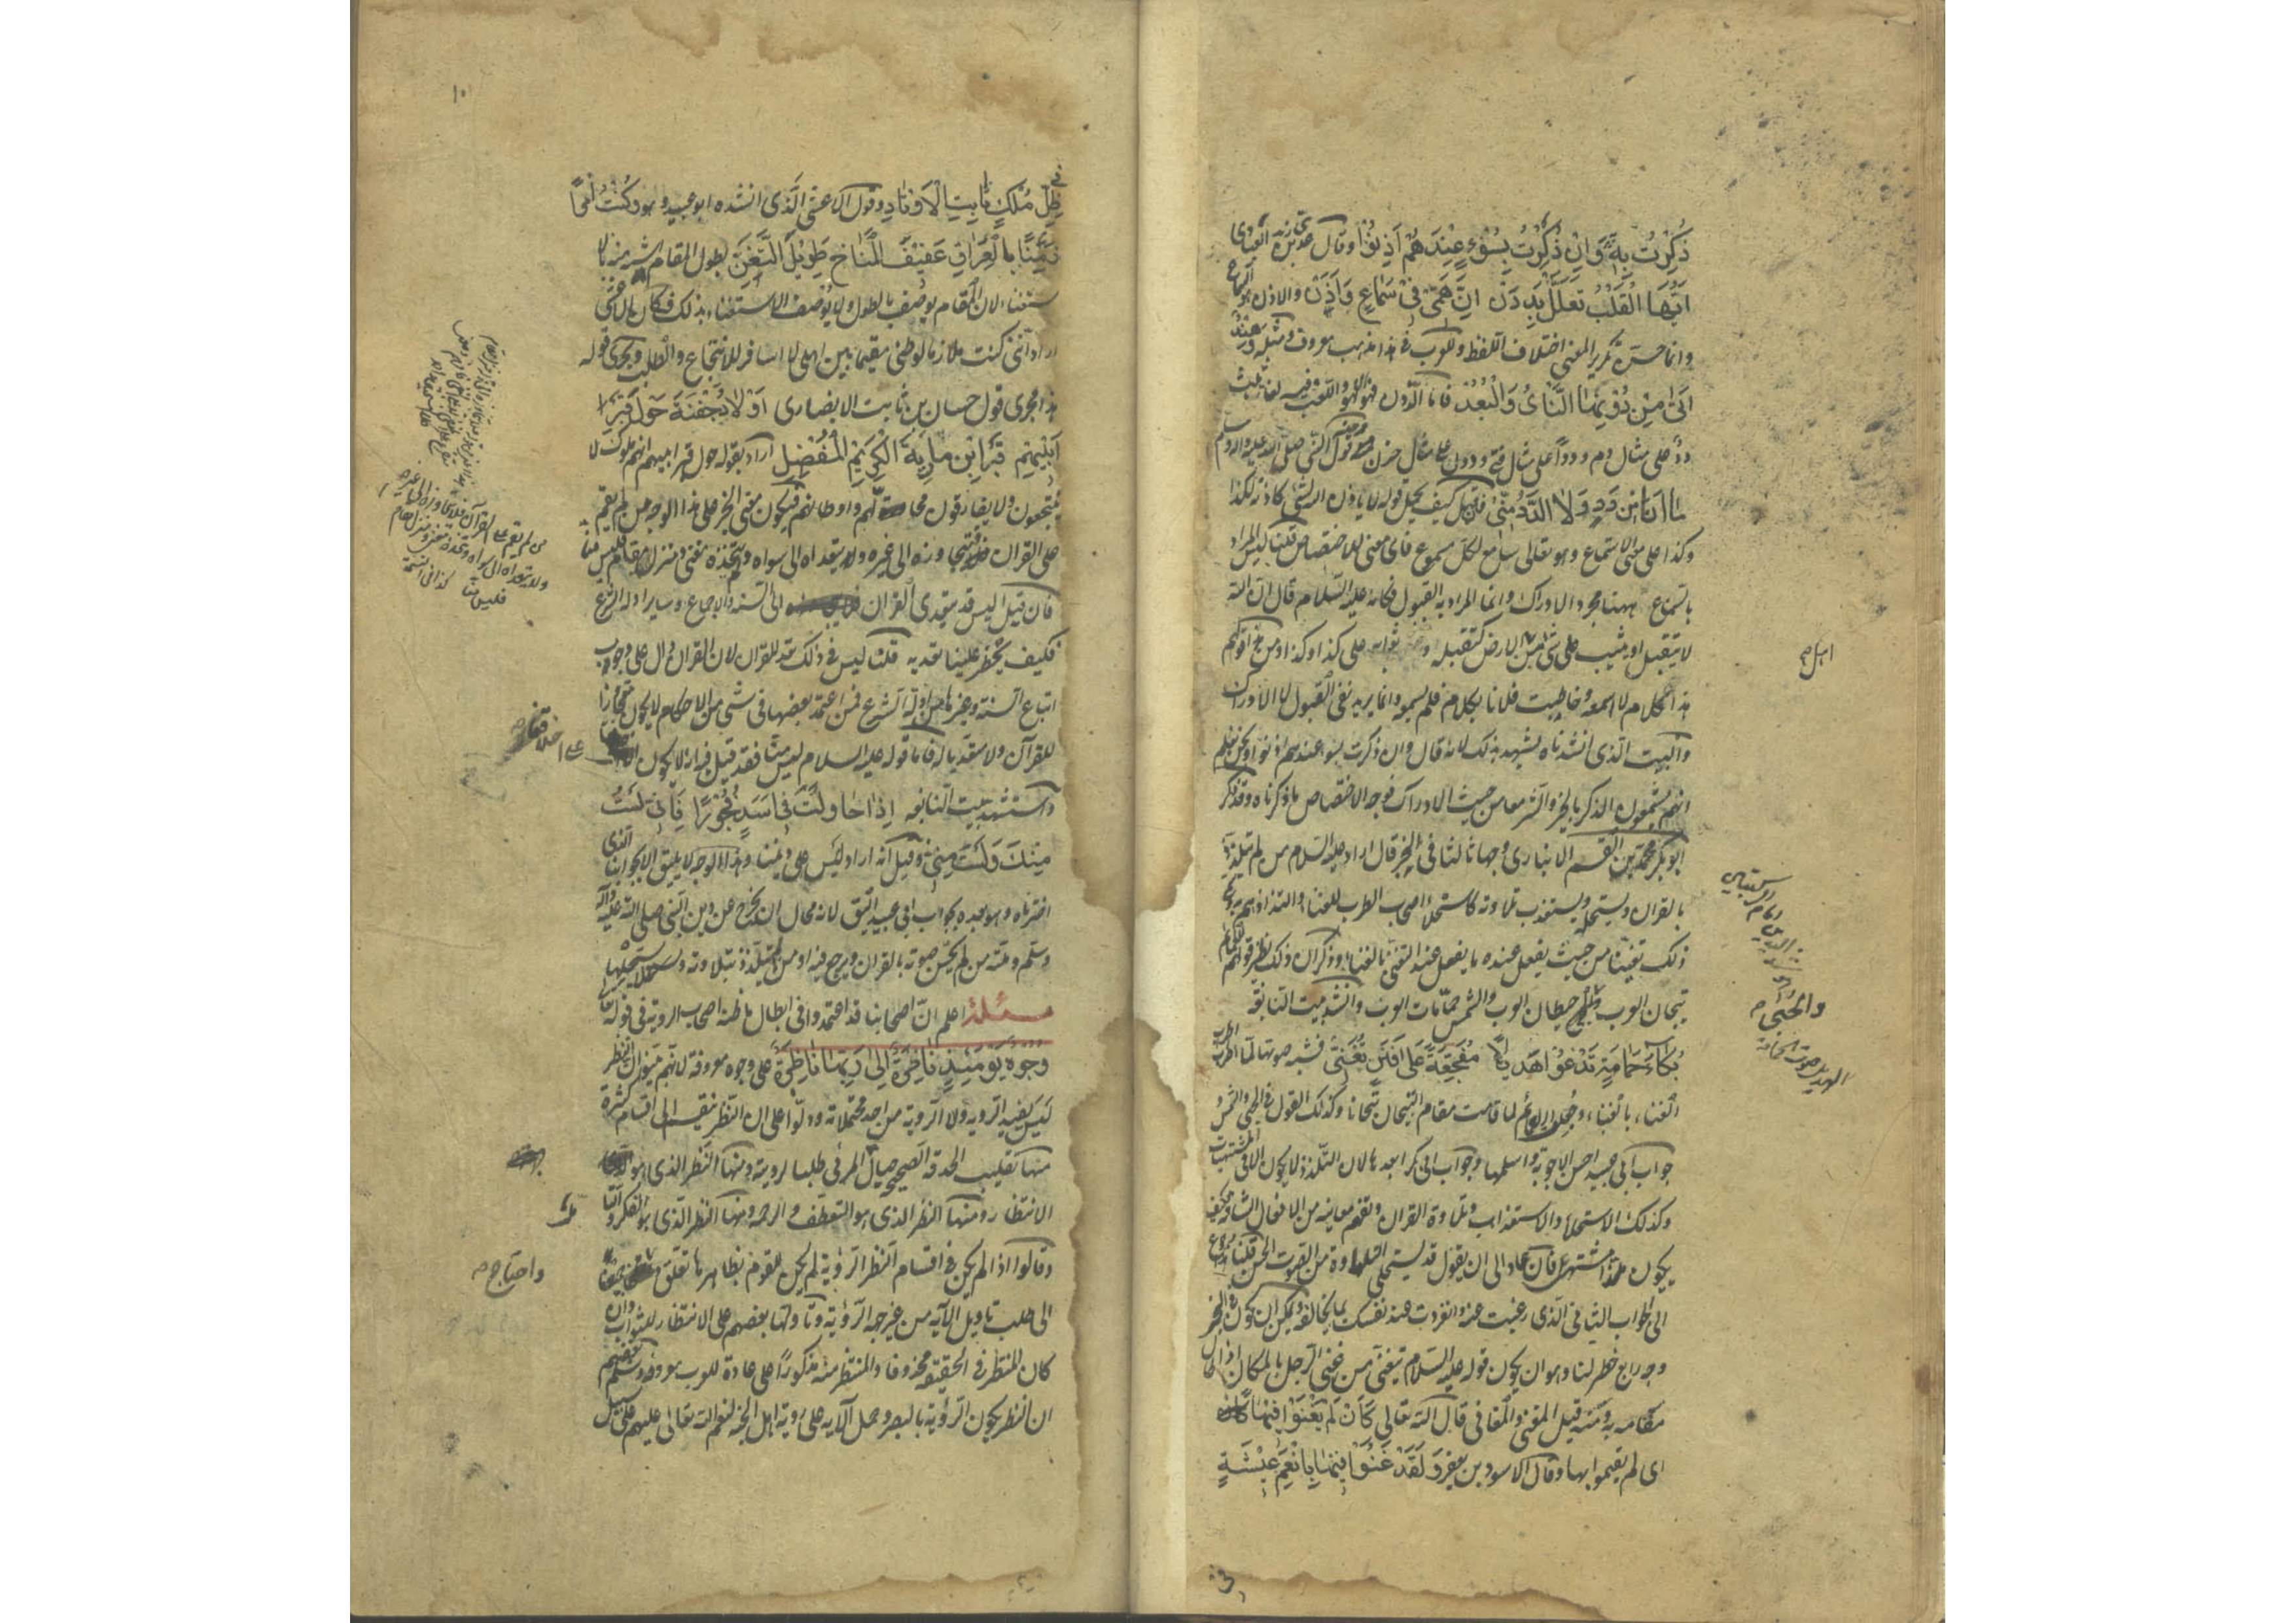 ذُكِرْتُ بِهِ وَاِنْ ذُكِرْتُ بِسُوْءٍ عِنْدَهُمْ اَذِنُوْا وقال عدى بن زيد العبادى
اَيُّهَا الْقَلْبُ تَعَلَّلْ بِدَدَنْ اِنَّ هَمّى فِىْ سَمَاعٍ وَاَذَنْ والاذن هو السماع
وانما حسن تكرير المعنى اختلاف اللفظ وللعرب فى هذا مذهب معروف ومثله وَهِنْدٌ
اَتى مِنْ دُوْنِهَا النَّأْىُ وَالْبُعْدُ فاما الددن فهو اللهو واللعب وفيه لغات ثلث
ددٌ على مثال دم وددًا على مثال فتى وددن على مثال حزن قول النبى صلى الله عليه واله وسلم
ما اَنَا مِنْ دَدٍ وَلَا الدَّدُ مِنّى فان قيل كيف يحمل قوله لا ياذن الله لشئ كاذنه لكذا
وكذا على معنى الاستماع وهو تعالى سامع لكل مسموع فاى معنى للاختصاص قلنا ليس المراد
بالسماع ههنا مجرد الادراك وانما المراد به القبول فكانه عليه السلام قال ان الله
لا يتقبل او يثيب على شئ من اهل الارض كتقبله وثوابه على كذا وكذا ومن هذا قولهم
هذا كلام لا اسمعه وخاطبت فلانا بكلام فلم يسمعه وانما يريد نفى القبول لا الادراك
والبيت الذى انشدناه يشهد بذلك لانه قال وان ذكرت بسوء عندهم اذنوا ونحن نعلم
انهم يستمعون الذكر بالخير والشر معا من حيث الادراك فوجه الاختصاص ما ذكرناه وقد ذكر
ابو بكر محمد بن القسم الانبارى وجها ثالثا فى الخبر قال اراد عليه السلام من لم يتلذذ
بالقران ويستحله ويستعذب تلاوته كاستحلاء اصحاب الطرب للغناء والتذاذهم به وسمى
ذلك تغنيا من حيث يفعل عنده ما يفعل عند التغنى بالغناء وذكر ان ذلك نظير قولهم العمائم
تيجان العرب حيطان العرب والشمس حمامات العرب وانشد بيت النابغة
بُكَاءَ حَمَامَةٍ تَدْعُوْ اهَدِيلًا مُفَجَّعَةٍ عَلى فَنَنٍ تُغَنّى فشبه صوتها لما اطرب
الغناء بالغناء وجعل العمائم لما قامت مقام التيجان تيجانا وكذلك القول فى الحبى والشمس
جواب ابى عبيد احسن الاجوبة واسلمها وجواب ابى بكر ابعدها لان التلذذ لا يكون الا فى المشتهيات
وكذلك الاستحلاء والاستعذاب وتلاوة القران وتفهم معانيه من الافعال الشاقة فكيف
يكون ملذا مشتهى فان عاد الى ان يقول قد يستحلى التلاوة من الصوت الحسن قلنا رجوع
الى الجواب الثانى الذى رغبت عنه وانفردت عند نفسك بما يخالفه ويمكن ان يكون فى الخبر
وجه رابع خطر لنا وهو ان يكون قوله عليه السلام يتغنى من غنى الرجل بالمكان اذا طال
مقامه به ومنه قيل المغنى والمغانى قال الله تعالى كَاَنْ لَمْ يَغْنَوْا فِيْهَا
اى لم يقيموا بها وقال الاسود بن يعفر وَلَقَدْ غَنَوْا فِيْهَا بِاَنْعَمِ عِيْشَةٍ
اهل م
والحبى م
الهديل صوت الحمامة
فى ظِلِّ مُلْكٍ ثَابِتِ الْاَوْتَادِ وقول الاعشى الَّذى انشده ابو عبيد وهو وَكُنْتُ امْرَأً
زَمَنًا بِالْعِرَاقِ عَفِيْفَ الْمُنَاخِ طَوِيْلَ التَّغَنّ بطول المقام اشبه منه بالا
ستغناء لان المقام يوصف بالطول ولا يوصف الاستغناء بذلك فكان الاعشى
اراد اننى كنت ملازما لوطنى مقيما بين اهلى لا اسافر للانتجاع والطلب ويجرى قوله
هذا مجرى قول حسان بن ثابت الانصارى اَوْلَادُ جَفْنَةَ حَوْلَ قَبْرِ
اَبِيْهِمْ قَبْرِ ابْنِ مَارِيَةَ الْكَرِيْمِ الْمُفْضِلِ اراد بقوله حول قبر ابيهم انهم ملوك لا
ينتجعون ولا يفارقون محالهم واوطانهم فيكون معنى الخبر على هذا الوجه من لم يقم
على القران فيتجاوزه الى غيره ولا يتعداه الى سواه ويتخذه مغنى ومنزلا ومقاما فليس منا
فان قيل اليس قد يتعدى القران الى السنة والاجماع وساير ادلة الشرع
فكيف يحظر علينا تعديه قلنا ليس فى ذلك تعد للقران لان القران دال على وجوب
اتباع السنة وغيرها من ادلة الشرع فمن اعتمد بعضها فى شئ من الاحكام لا يكون متجاوزا
للقرآن ولا متعديا له فاما قوله عليه السلام ليس منا فقد قيل فيه انه لا يكون
واستشهد ببيت النابغه اِذَا حَاوَلْتَ فِى اَسَدٍ فُجُوْرًا فَاِنّى لَسْتُ
مِنْكَ وَلَسْتَ مِنّى وقيل انه اراد ليس على ديننا وهذا الوجه لا يليق الا بجوابنا الذى
اخترناه وهو بعد بجواب ابى عبيد اليق لانه محال ان يخرج عن دين النبى صلى الله عليه واله
وسلم وملته من لم يحسن صوته بالقران ويرجع فيه او من لم يتلذذ بتلاوته ويستحلها
مسئلة اعلم انّ اصحابنا قد اعتمدوا فى ابطال ما ظنه اصحاب الروية فى قوله تعالى
وُجُوْهٌ يَوْمَئِذٍ نَاضِرَةٌ اِلى رَبِّهَا نَاظِرَةٌ على وجوه معروفة لانهم بينوا ان النظر
ليس يفيد الروية ولا الروية من احد محتملاته ودلوا على ان النظر ينقسم الى اقسام كثيرة
منها تقليب الحدقة الصحيحة حيال المرئى طلبا لرويته ومنها النظر الذى هو
الانتظار ومنها النظر الذى هو التعطف والرحمة ومنها النظر الذى هو الفكر والتا
وقالوا اذا لم يكن فى اقسام النظر الرؤية لم يكن للقوم بظاهرها تعلق
الى طلب تاويل الآية من غير جهة الرؤية وتاولها بعضهم على الانتظار للثواب وان
كان المنتظر فى الحقيقة محذوفا والمنتظر منه مذكورًا على عادة للعرب معروفة وسلم بعضهم
ان النظر يكون الرؤية بالبصر وحمل الآية على رؤية اهل الجنة لنعم الله تعالى عليهم على سبيل
واحتاج م